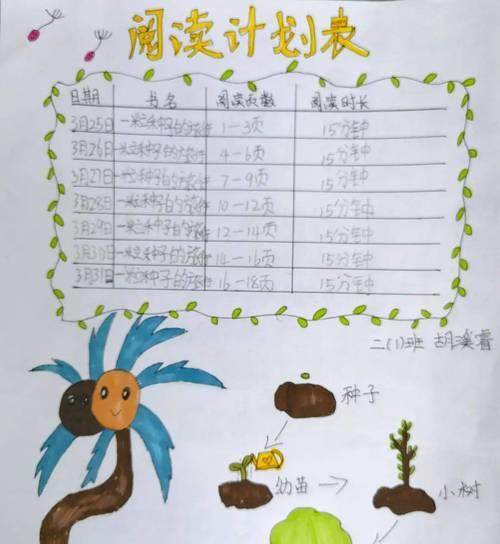 阅读计划表
日期 书名 阅读页数 阅读时长
3月25日 一粒种子的旅行 1—3页 15分钟
3月26日 一粒种子的旅行 4—6页 15分钟
3月27日 一粒种子的旅行 7—9页 15分钟
3月28日 一粒种子的旅行 10—12页 15分钟
3月29日 一粒种子的旅行 12—14页 15分钟
3月30日 一粒种子的旅行 14—16页 15分钟
3月31日 一粒种子的旅行 16—18页 15分钟
二(1)班 胡溪睿
种子
幼苗
小树